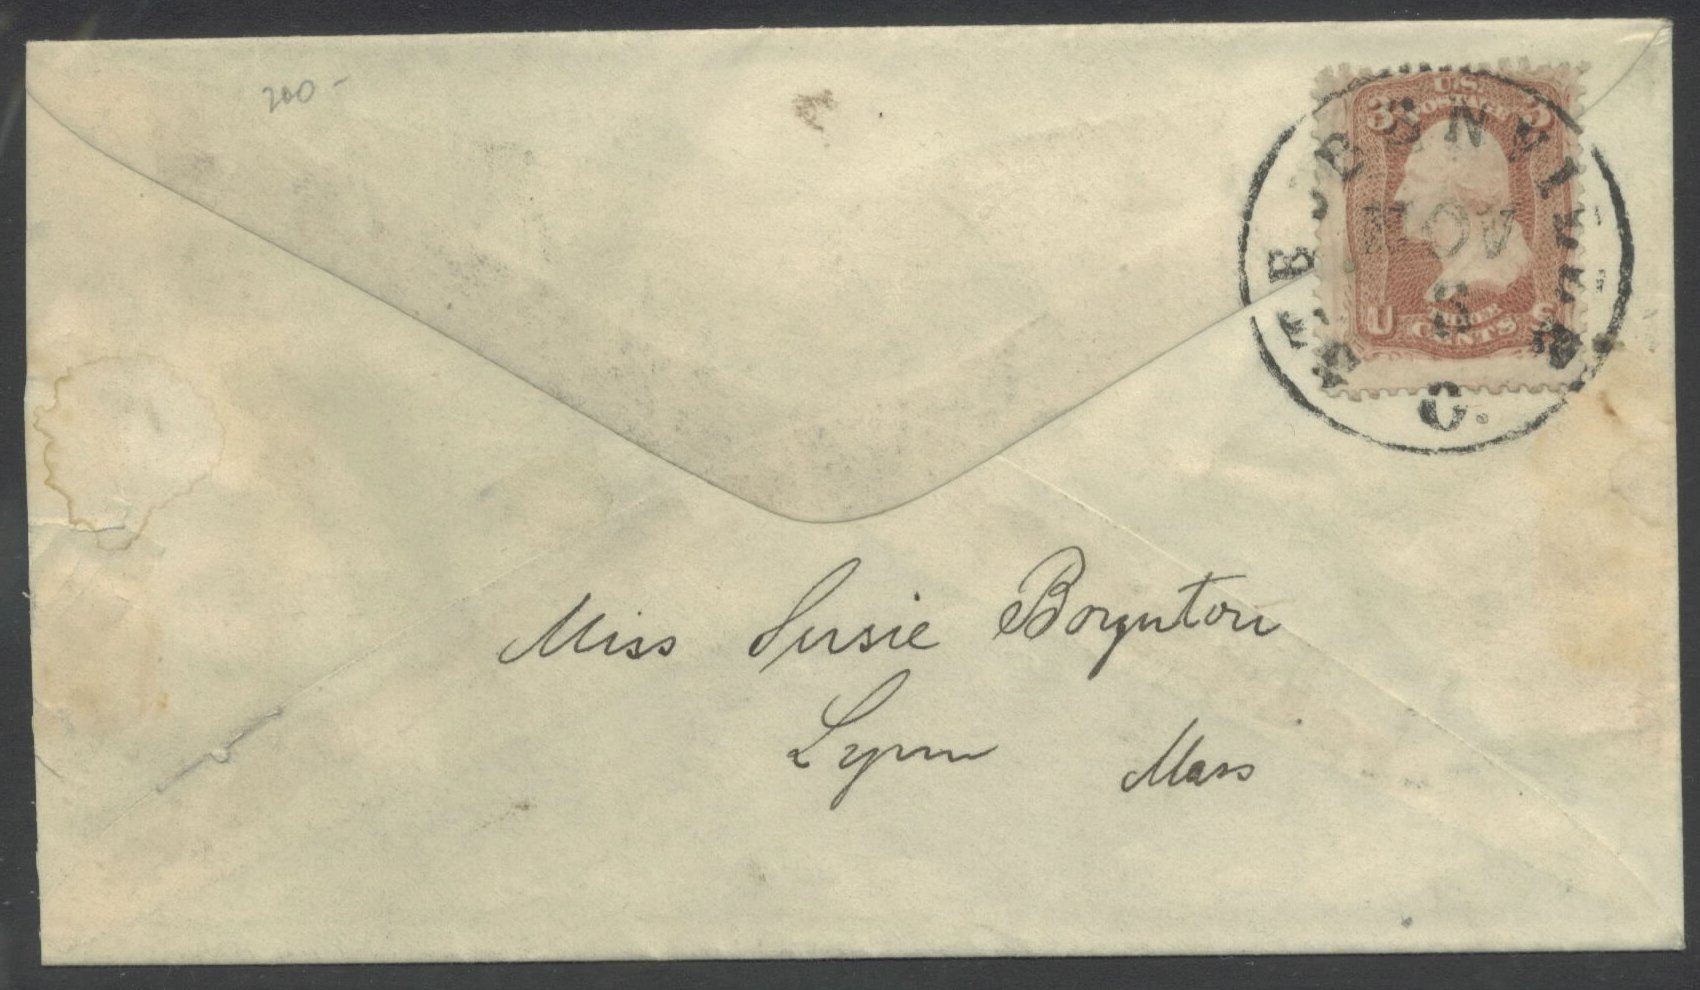 200-
U.S.
POSTAGE
3 3
NOV
U S
THREE
CENTS
C.
Miss Susie Boynton
Lynn Mass